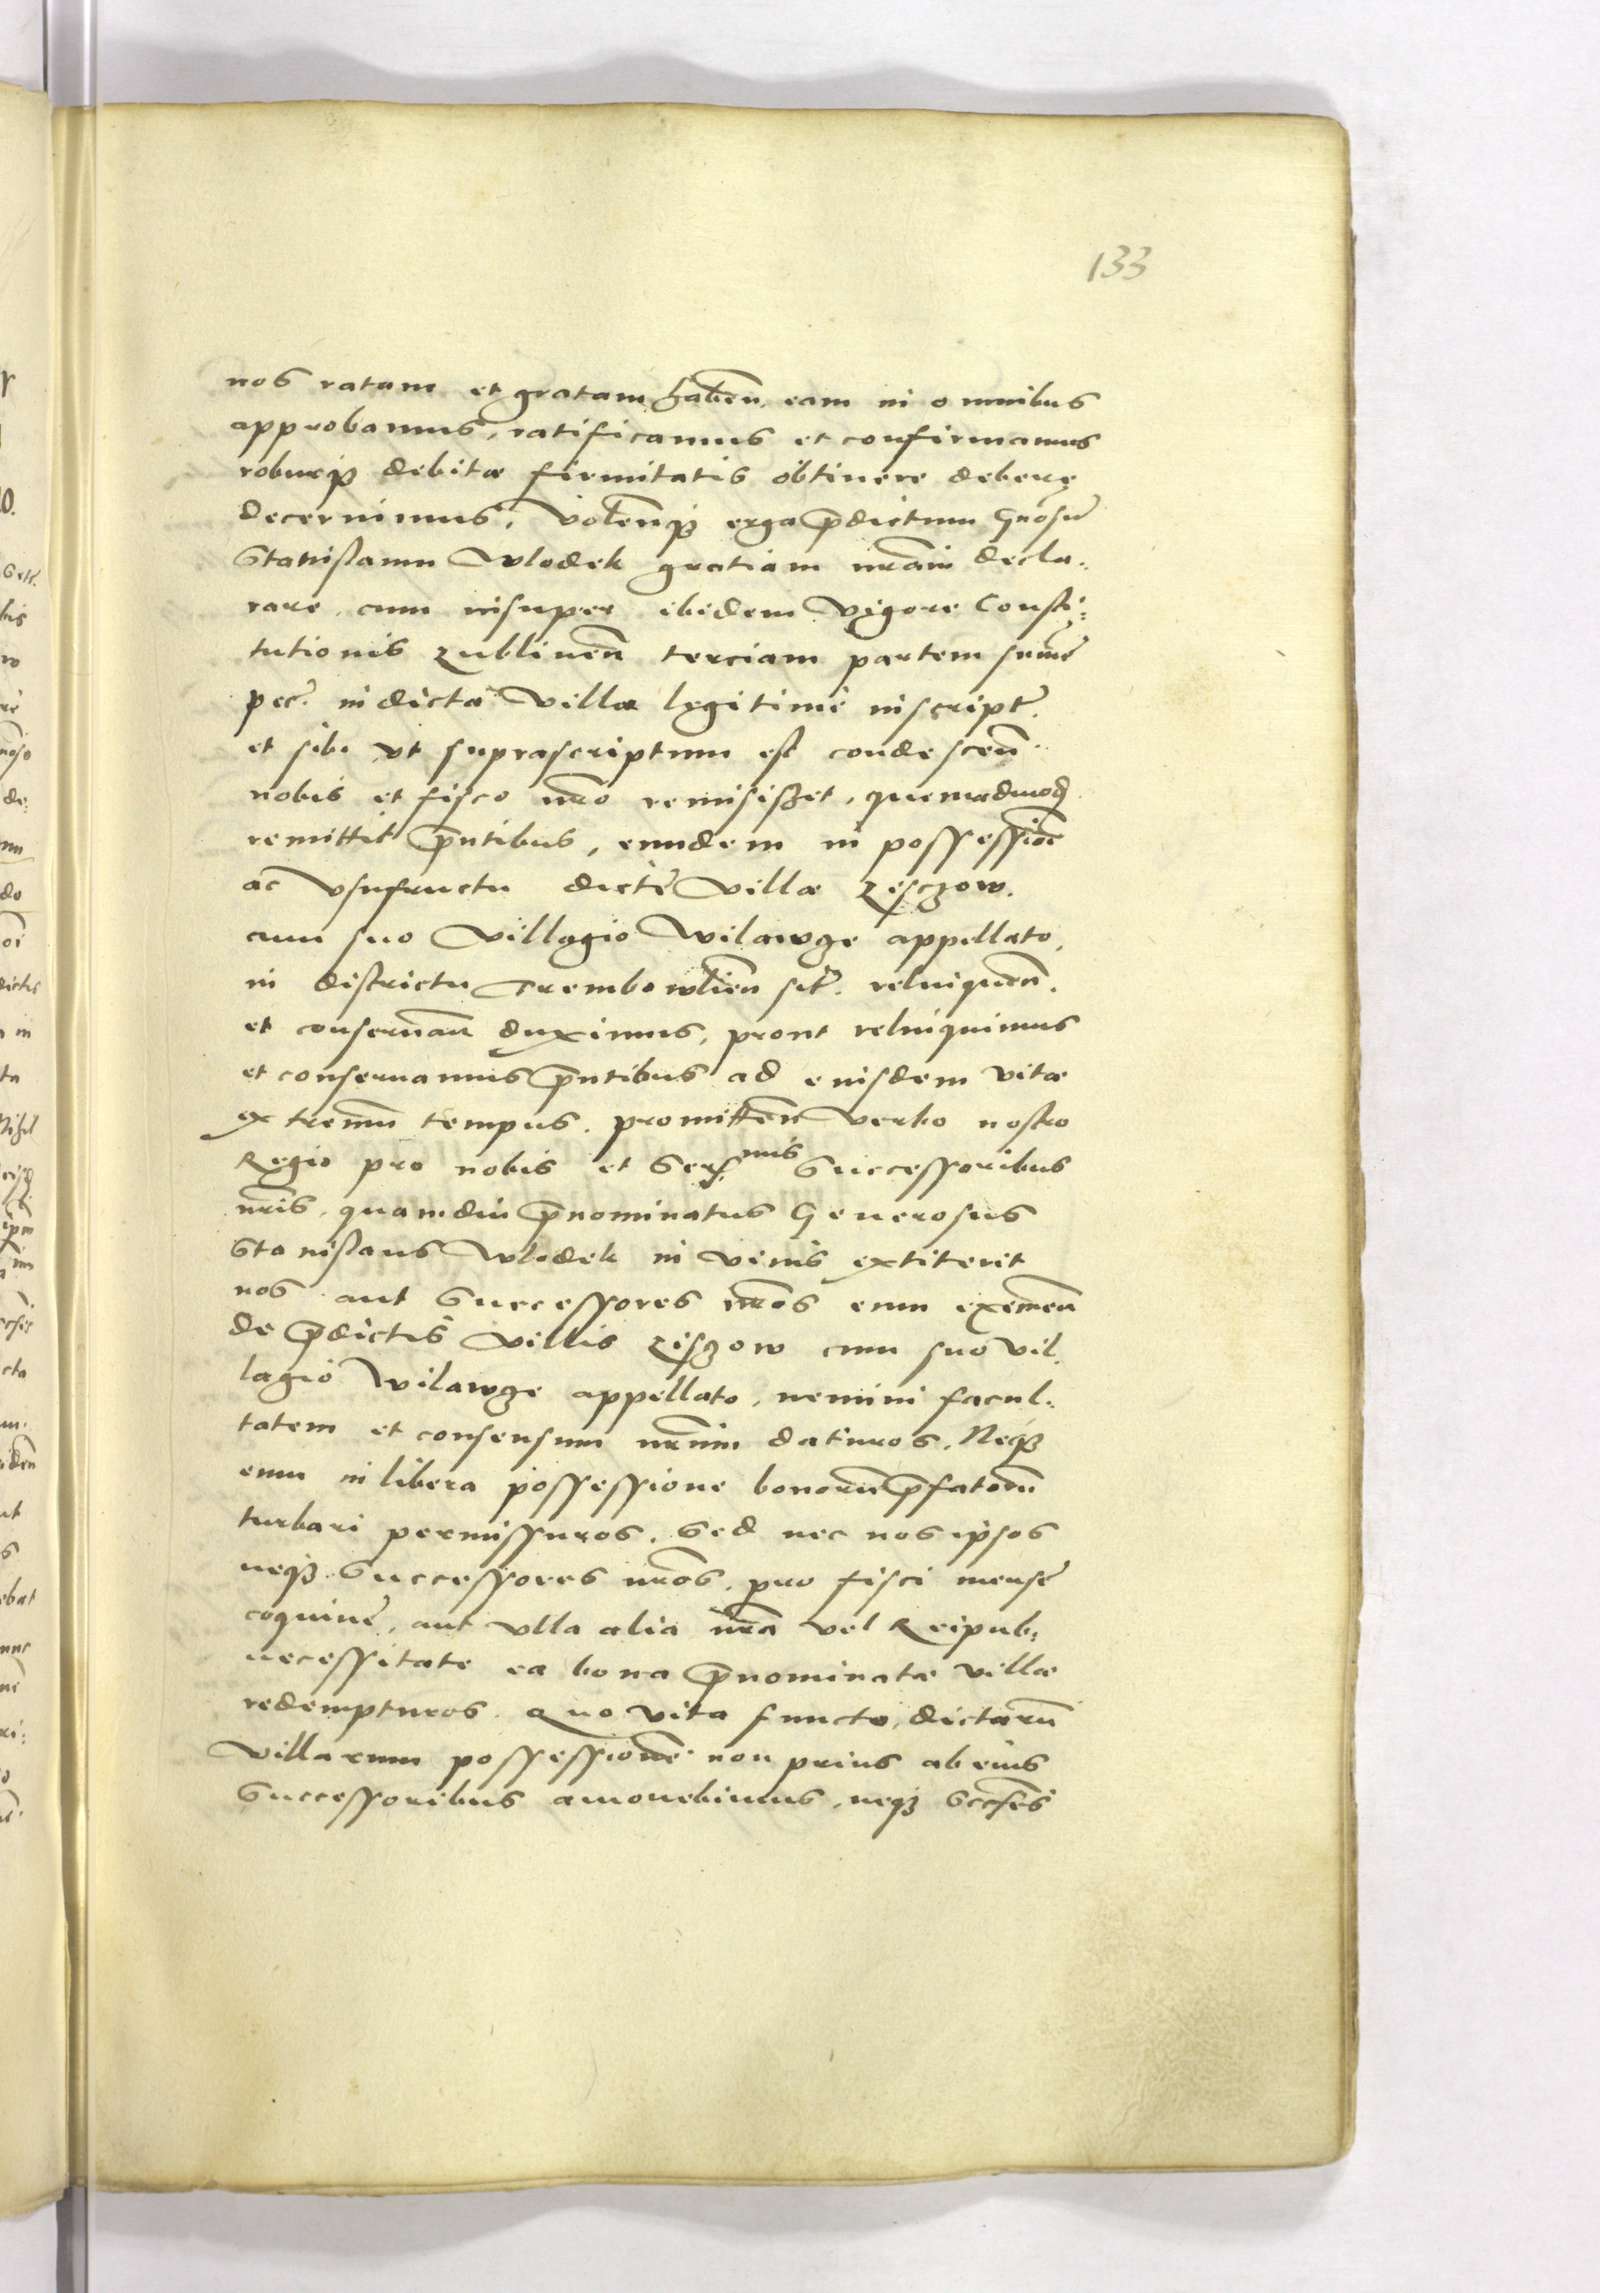 133
nos ratam et gratam habeñ. eam in omnibus
approbamus, ratificamus et confirmamus
roburq3 debitæ firmitatis obtinere debere
decernimus. Voleñq3 erga p̄dictum Gnosū
Stanislaum Wlodek gratiam nr̄am decla:
rare, cum insuper ibidem vigore Consti:
tutionis Lublineñ terciam partem summę
pec. in dicta villa legitime inscript.
et sibi vt suprascriptum est condesceñ.
nobis et fisco nr̄o remisis3et, quemadmod
remittit p̄ntibus, eundem in possessioñe
ac vsufructu dictę villæ Lysczow.
cum suo villagio Wilawge appellato,
in districtu Trembowlieñ sit. relinqueñ.
et conseruañ duximus, prout relinquimus
et conseruamus p̄ntibus ad eiusdem vitæ
extremū tempus. promitteñ verbo nostro
Regio pro nobis et Sers.mis Successoribus
nr̄is, quamdiu p̄nominatus Generosus
Stanislaus Wlodek in viuis extiterit
nos aut Successores nr̄os eum eximeñ
de p̄dictis villis Lis3ow cum suo vil.
lagio Wilawge appellato, nemini facul.
tatem et consensum nr̄um daturos. Neq3
eum in libera possessione bonorū p̄fatorū
turbari permissuros. Sed nec nos ipsos
neq3 Successores nr̄os, pro fisci mensę
coquinę, aut vlla alia nr̄a vel Reipub:
necessitate ea bona p̄nominatæ villæ
redempturos. Quo vita functo, dictarū
villarum possessionē non prius ab eius
Successoribus amouebimus, neq3 Sccs̄es